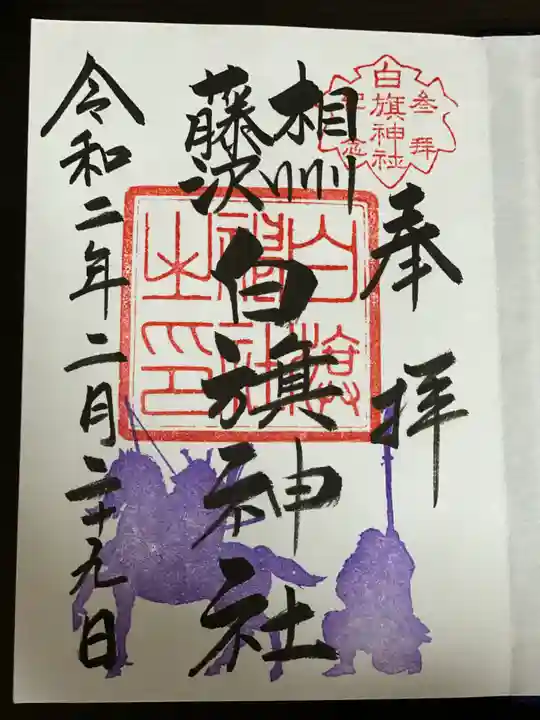 参拝
白旗神社
記念
奉拝
相州
藤沢
白旗神社
白旗神社之印
令和二年二月二十九日